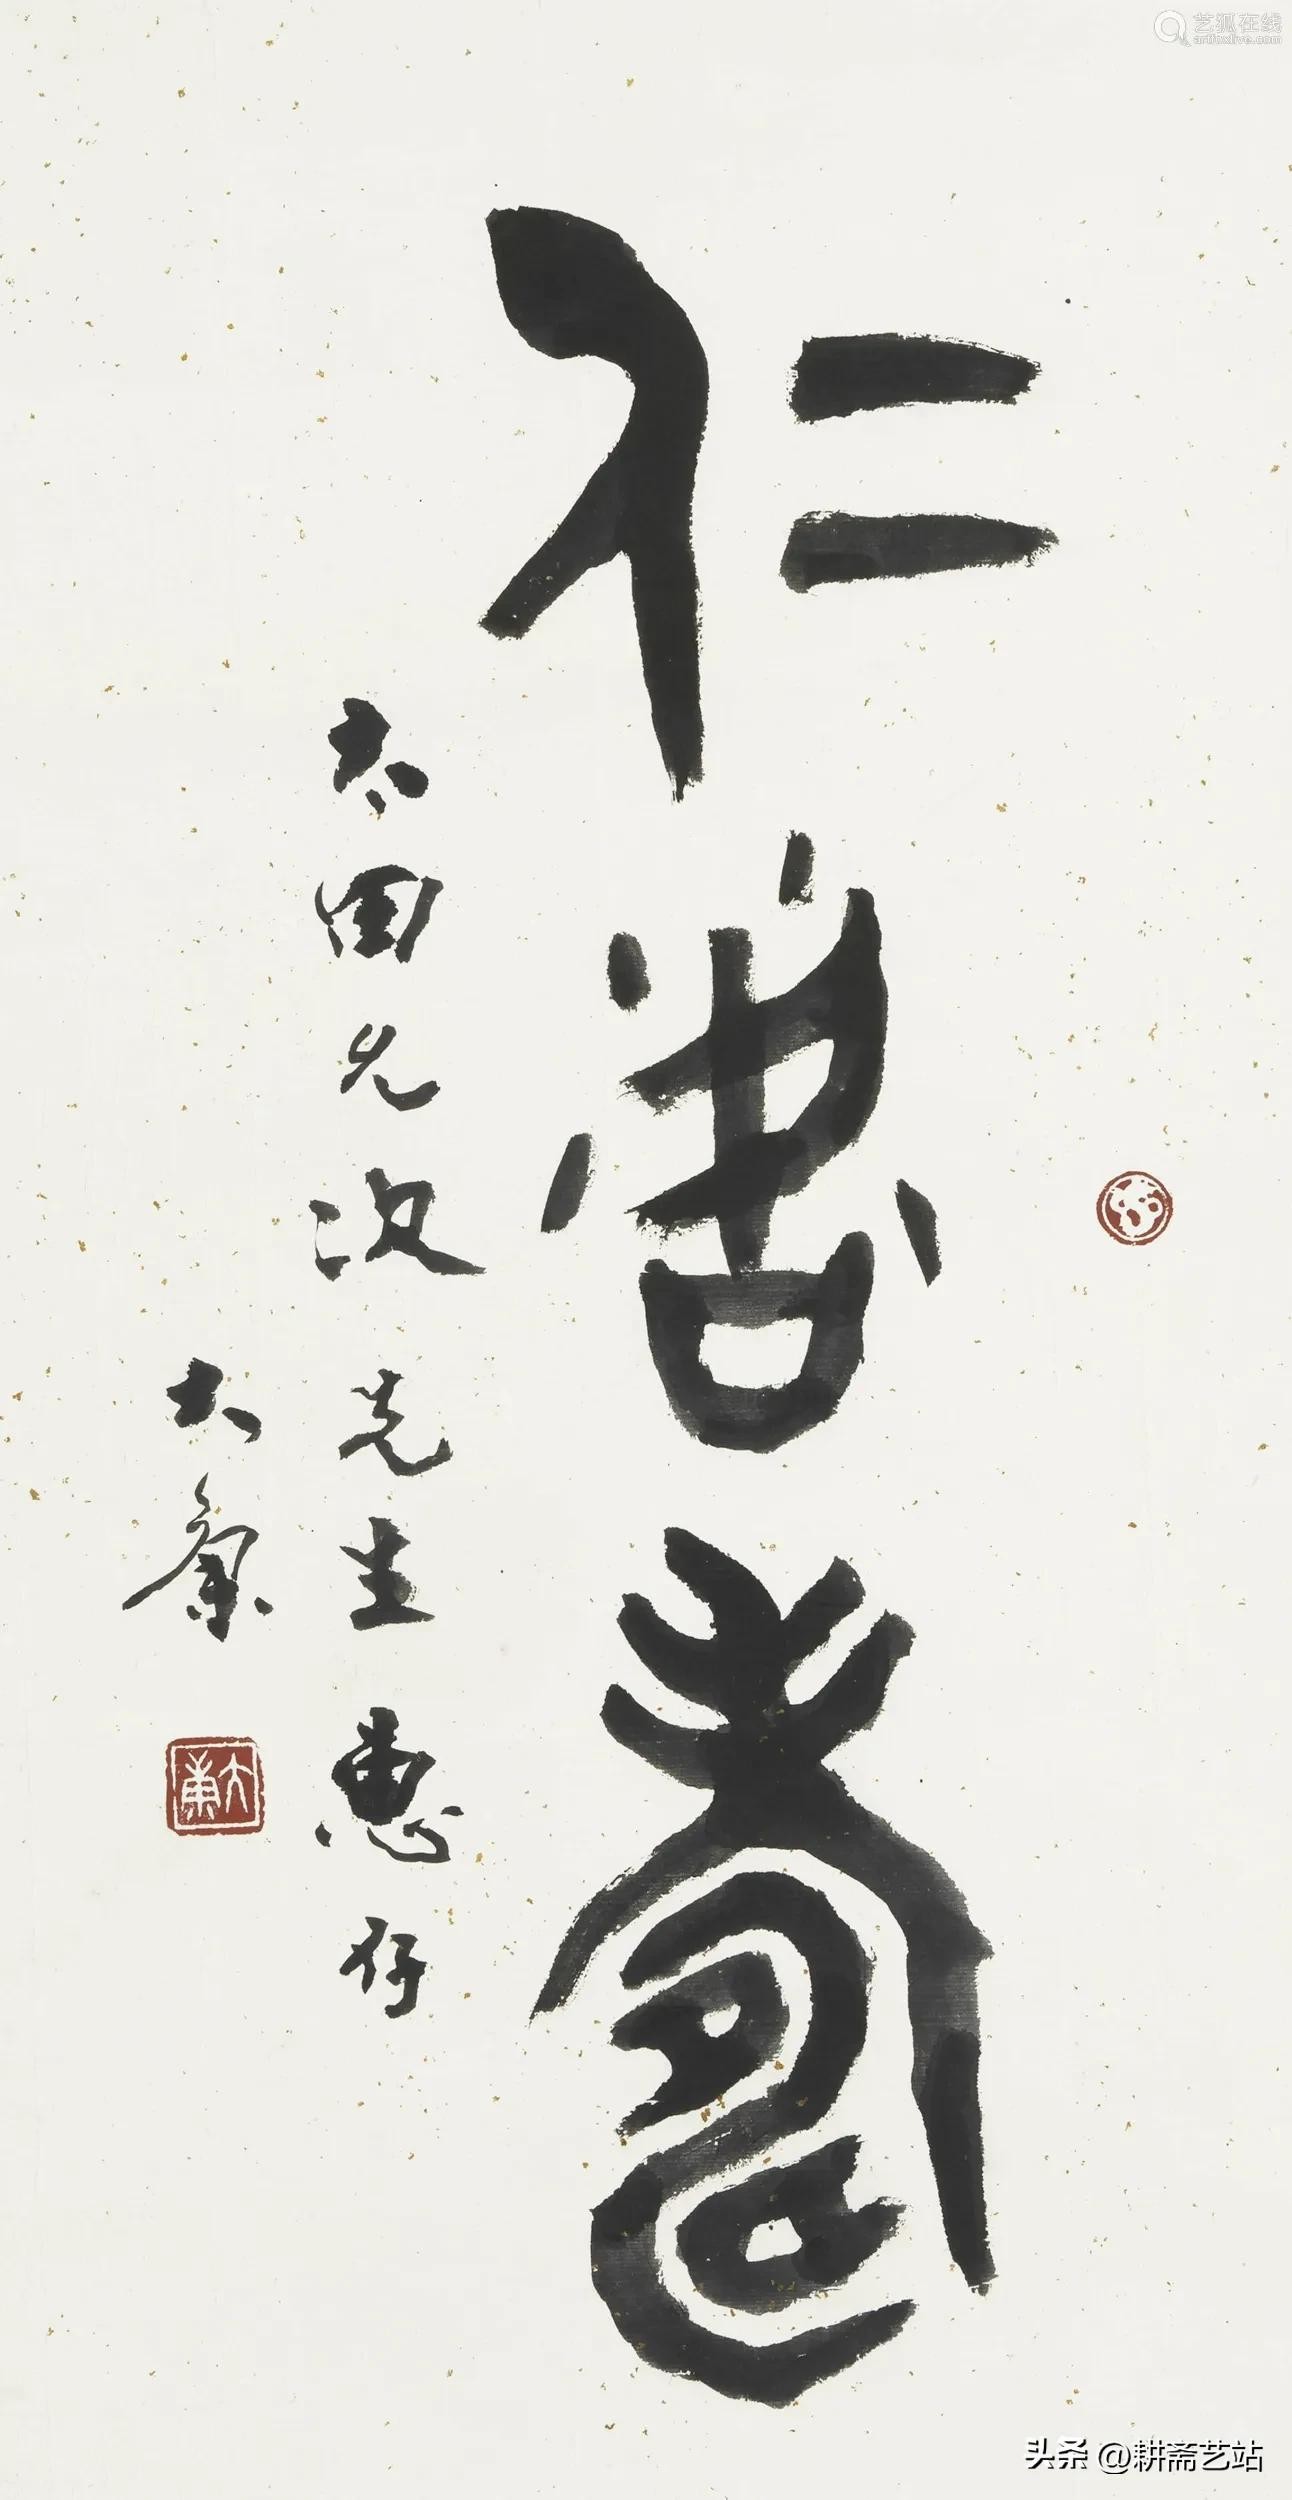 仁者壽
太田元次先生惠存
大康
大康
艺狐在线
artfoxlive.com
头条 @耕斋艺站